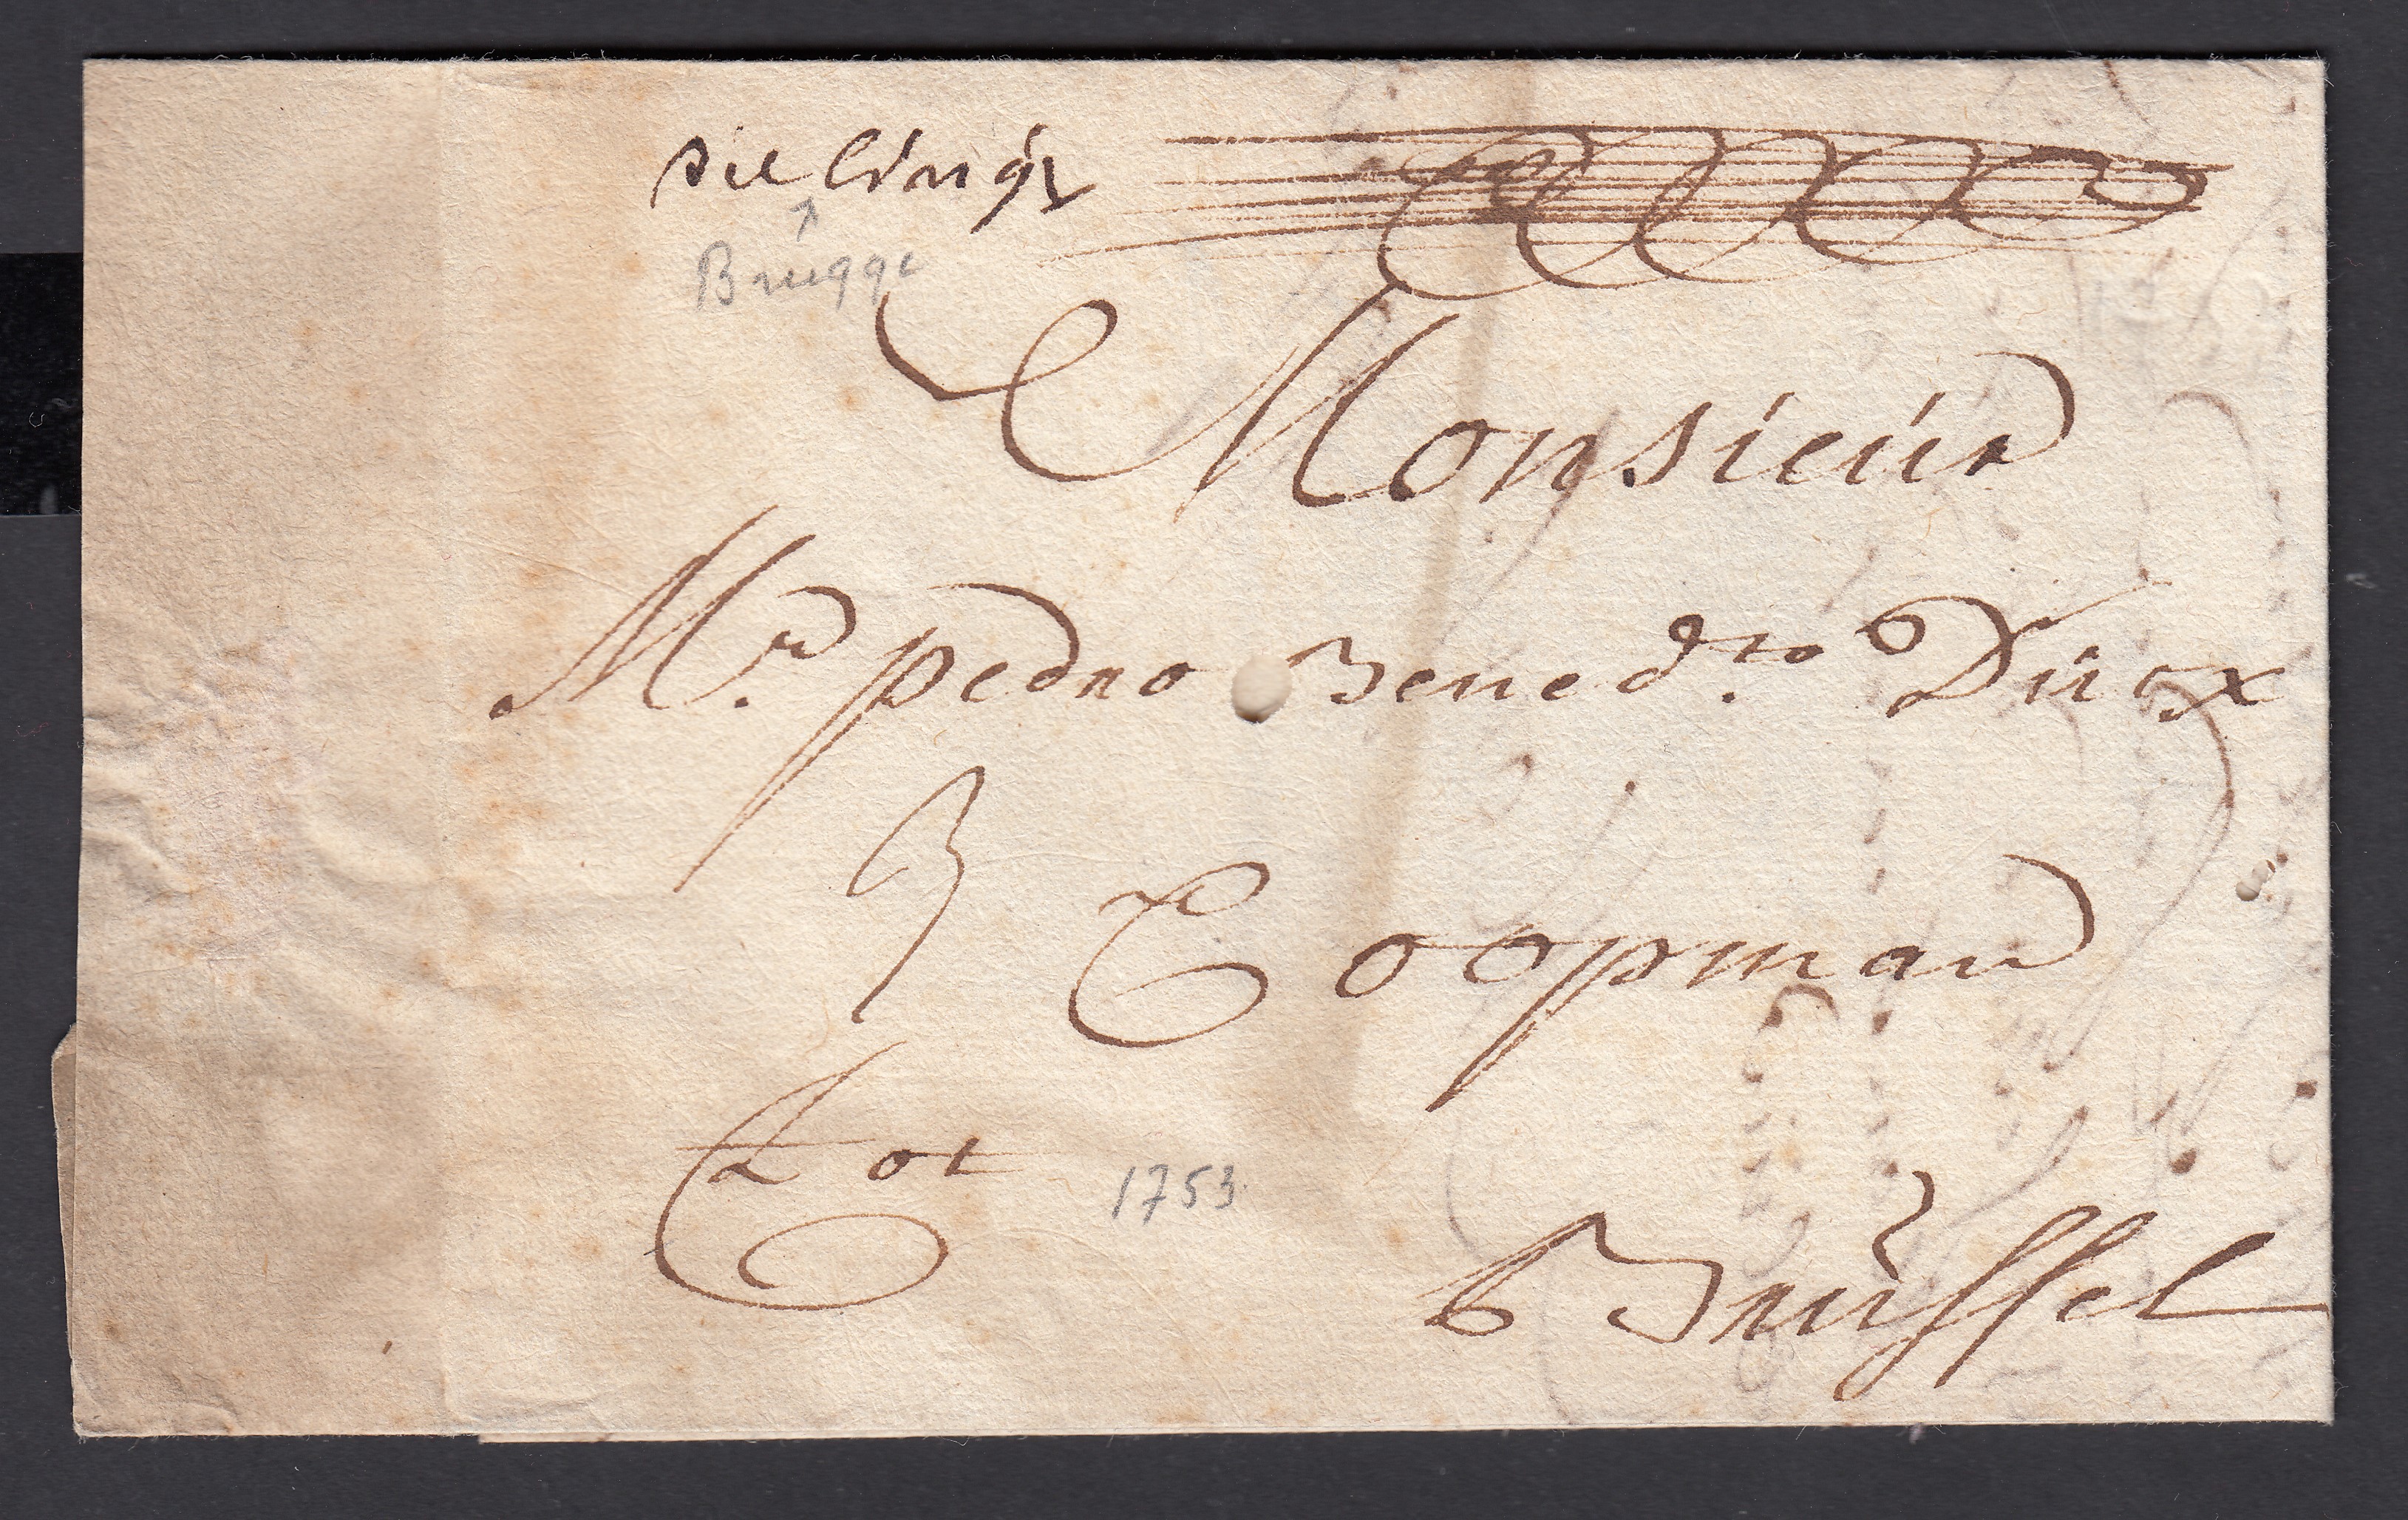 Brugge
Monsieur
Mr. pedro Bened.to Dircx
3 Coopman
Tot
1753
Brussel